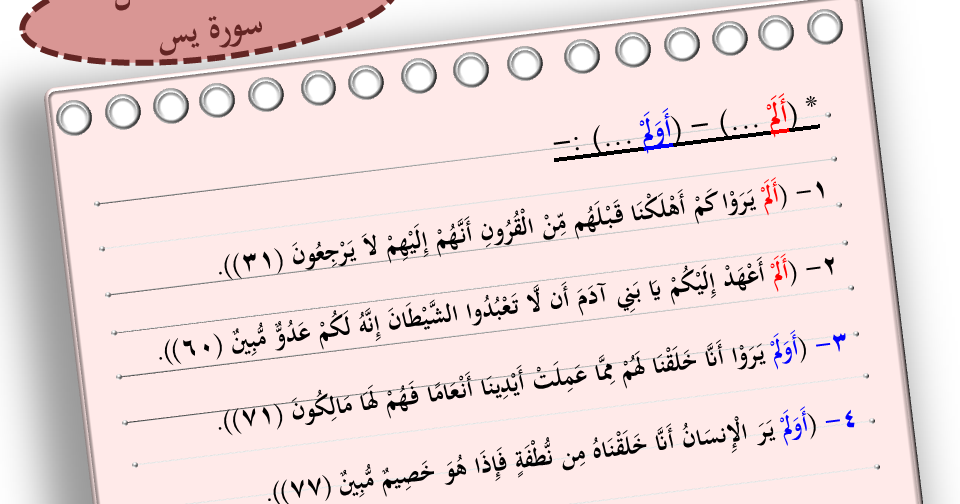 سورة يس
* (أَلَمْ ...) – (أَوَلَمْ ...) :–
١– (أَلَمْ يَرَوْا كَمْ أَهْلَكْنَا قَبْلَهُم مِّنْ الْقُرُونِ أَنَّهُمْ إِلَيْهِمْ لاَ يَرْجِعُونَ (٣١)).
٢– (أَلَمْ أَعْهَدْ إِلَيْكُمْ يَا بَنِي آدَمَ أَن لَّا تَعْبُدُوا الشَّيْطَانَ إِنَّهُ لَكُمْ عَدُوٌّ مُّبِينٌ (٦٠)).
٣– (أَوَلَمْ يَرَوْا أَنَّا خَلَقْنَا لَهُمْ مِمَّا عَمِلَتْ أَيْدِينَا أَنْعَامًا فَهُمْ لَهَا مَالِكُونَ (٧١)).
٤– (أَوَلَمْ يَرَ الْإِنسَانُ أَنَّا خَلَقْنَاهُ مِن نُّطْفَةٍ فَإِذَا هُوَ خَصِيمٌ مُّبِينٌ (٧٧)).